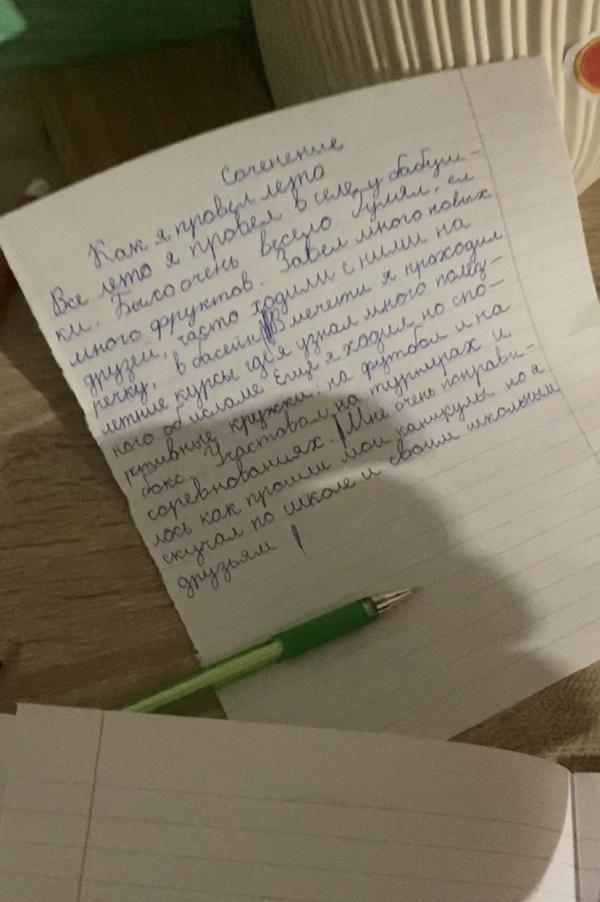 Сочинение
Как я провел лето
Все лето я провел в селе, у бабуш-
ки. Было очень весело. Гулял, ел
много фруктов. Завел много новых
друзей, часто ходили с ними на
речку, в басейн. В мечети я проходил
летние курсы где я узнал много полез-
ного об исламе. Ещё я ходил но спо-
ртивные кружки, на футбол и на
бокс. Участовал на турнирах и
соревнованиях. Мне очень понрави-
лось как прошли мои каникулы но я
скучал по школе и своим школьным
друзьям